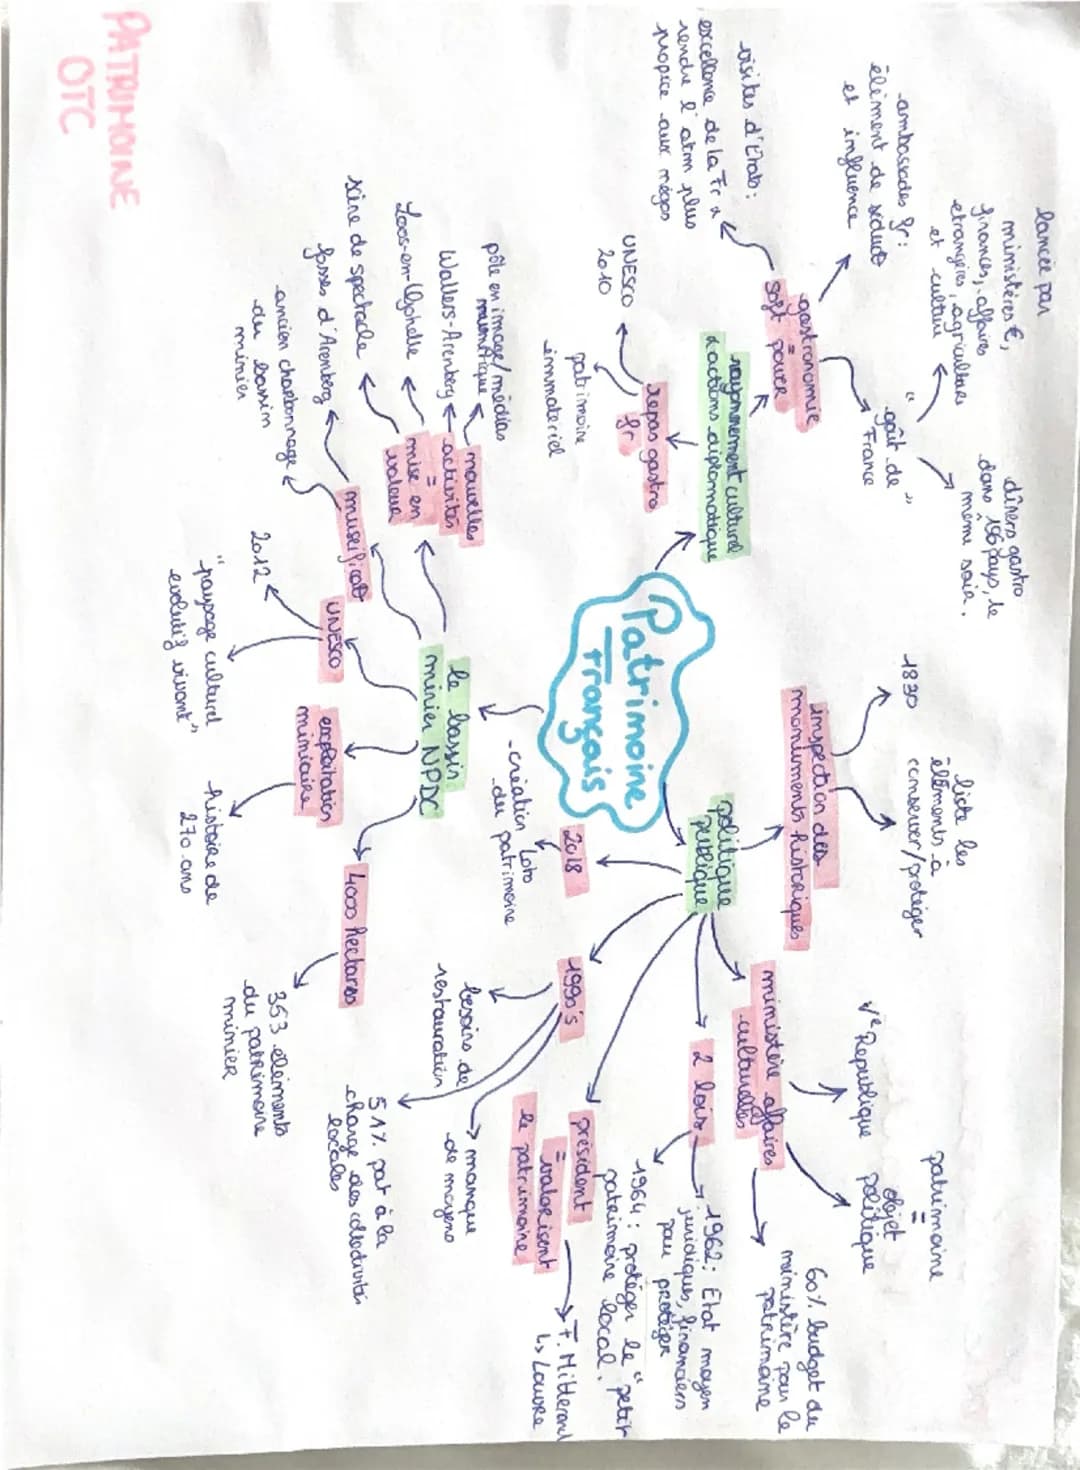 PATRIMOINE
OTC
Patrimoine
Français
rayonnement culturel
& actions diplomatique
gastronomie
=
soft power
visites d'Etats :
excellence de la Fr &
rendre l'atm plus
propice aux négos
ambassades fr :
élément de séduct°
et influence
"goût de
France"
lancée par
ministères €,
finances, affaires
etrangères, agricultures
et culture
dîners gastro
dans 156 pays, le
même soir.
repas gastro
fr
UNESCO
2010
patrimoine
immateriel
politique
publique
inspection des
monuments historiques
1830
liste les
éléments à
conserver/protéger
ministère affaires
culturelles
Ve Republique
patrimoine
=
objet
politique
60% budget du
ministère pour le
patrimoine
2 lois
1962 : Etat moyen
juridiques, financiers
pour protéger
1964 : protéger le "petit
patrimoine local.
président
= valorisent
le patrimoine
F. Mitterand
↳ Louvre
1990's
besoins de
restauration
manque
de moyens
51% pat à la
charge des collectivités
locales
2018
-création Loto
du patrimoine
le bassin
minier NPDC
nouvelles
activités
=
mise en
valeur
pôle en image/médias
numérique
Wallers-Arenberg
Loos-en-Gohelle
scène de spectacle
museificat°
fosses d'Arenberg
ancien charbonnage
du bassin
minier
UNESCO
2012
"paysage culturel
evolutif vivant"
exploitation
miniaire
histoire de
270 ans
4000 hectares
353 éléments
du patrimoine
minier